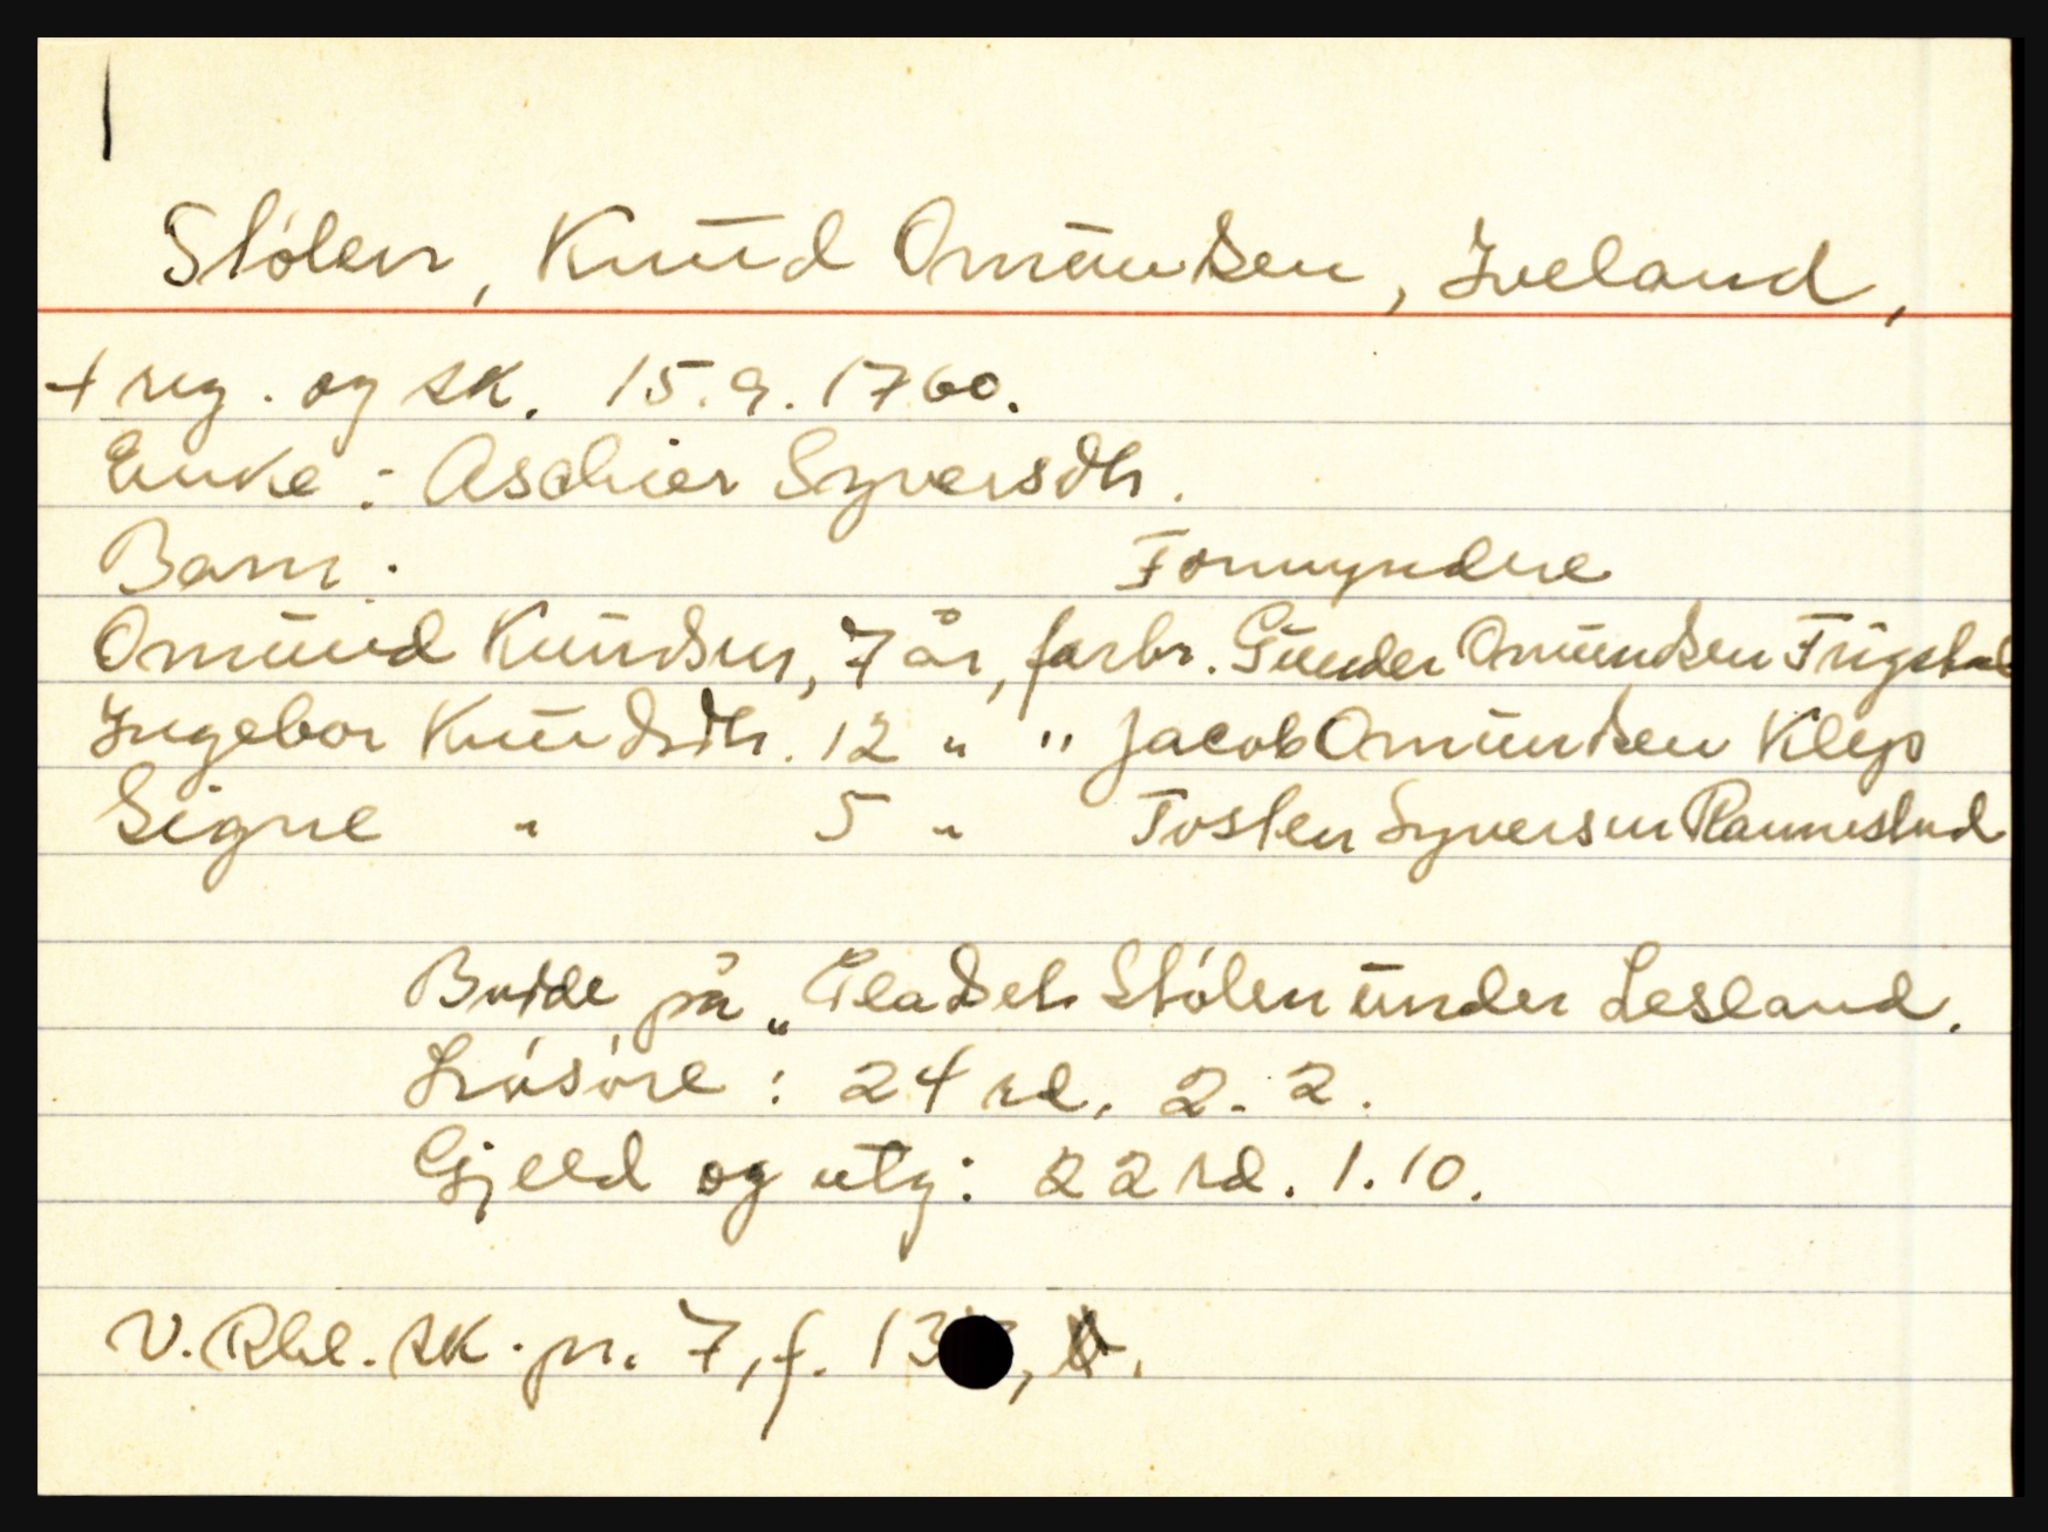 Stólen, Knud Omundsen, Iveland,
+ reg. og sk. 15.9.1760.
Enke: Aschier Syversdtr.
Barn: Formyndere
Omund Knudsen, 7 år, farbr. Gunder Omundsen Frigstad
Ingebor Knudsdtr. 12 " " Jacob Omundsen Klep
Signe " 5 " Tosten Syversen Rannestad
Bodde på „Pladset Stólen under Lesland.
Lósóre: 24 rd. 2. 2.
Gjeld og utg: 22 rd. 1.10.
V. Rbl. sk. pr. 7, f.